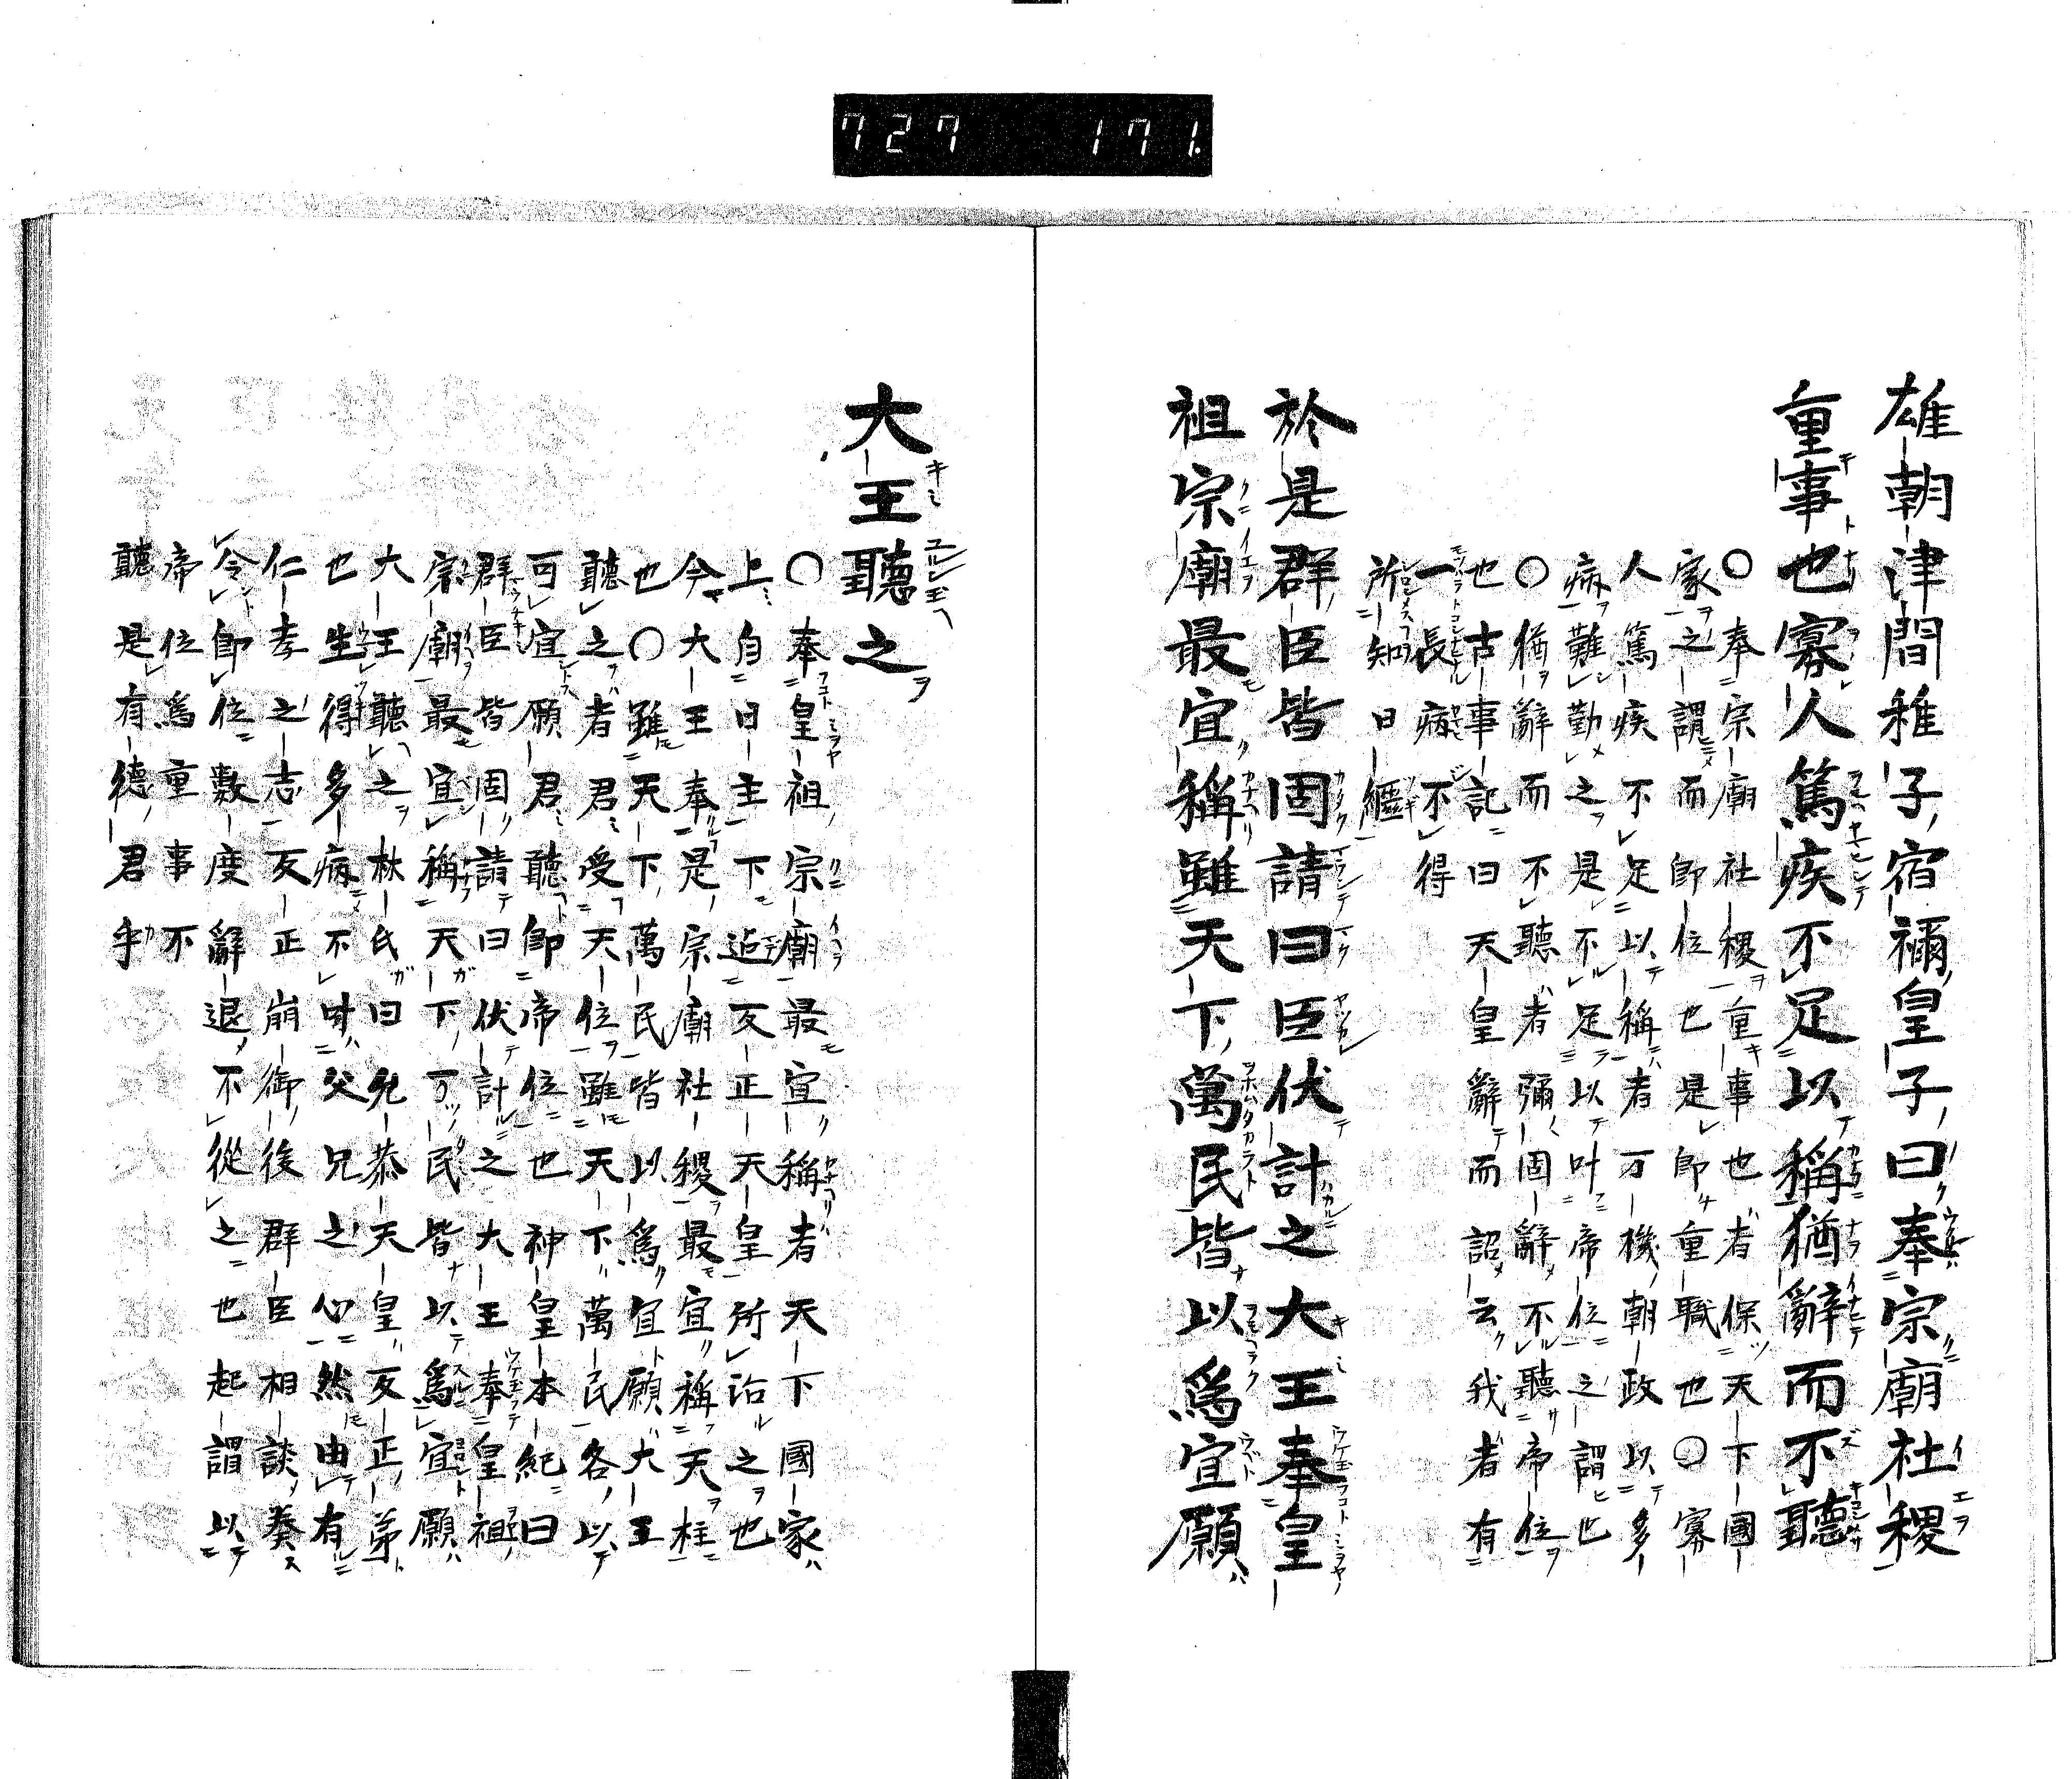 727 171.
雄朝津間稚子宿禰皇子曰奉宗廟社稷
重事也寡人篤疾不足以稱猶辭而不聽
〇奉宗廟社稷重事也者保天下國
家之謂而即位也是即重職也〇寡
人篤疾不足以稱者万機朝政以多
病難勤之是不足以叶帝位之謂也
〇猶辭而不聽者彌固辭不聽帝位
也古事記曰天皇辭而詔云我者有
一長病不得
所知日繼
於是群臣皆固請曰臣伏計之大王奉皇
祖宗廟最宜稱雖天下萬民皆以爲宜願
大王聽之
〇奉皇祖宗廟最宜稱者天下國家
上自日主下迠反正天皇所治之也
今大王奉是宗廟社稷最宜稱天柱
也〇雖天下萬民皆以爲宜願大王
聽之者君受天位雖天下萬民各以
可宜願君聽即帝位也神皇本紀曰
群臣皆固請曰伏計之大王奉皇祖
宗廟最宜稱天下可民皆以爲宜願
大王聽之林氏曰允恭天皇反正弟
也生得多病不叶父兄之心然由有
仁孝之志反正崩御後群臣相談奏
令即位數度辭退不從之也起謂以
帝位爲重事不
聽是有德君乎